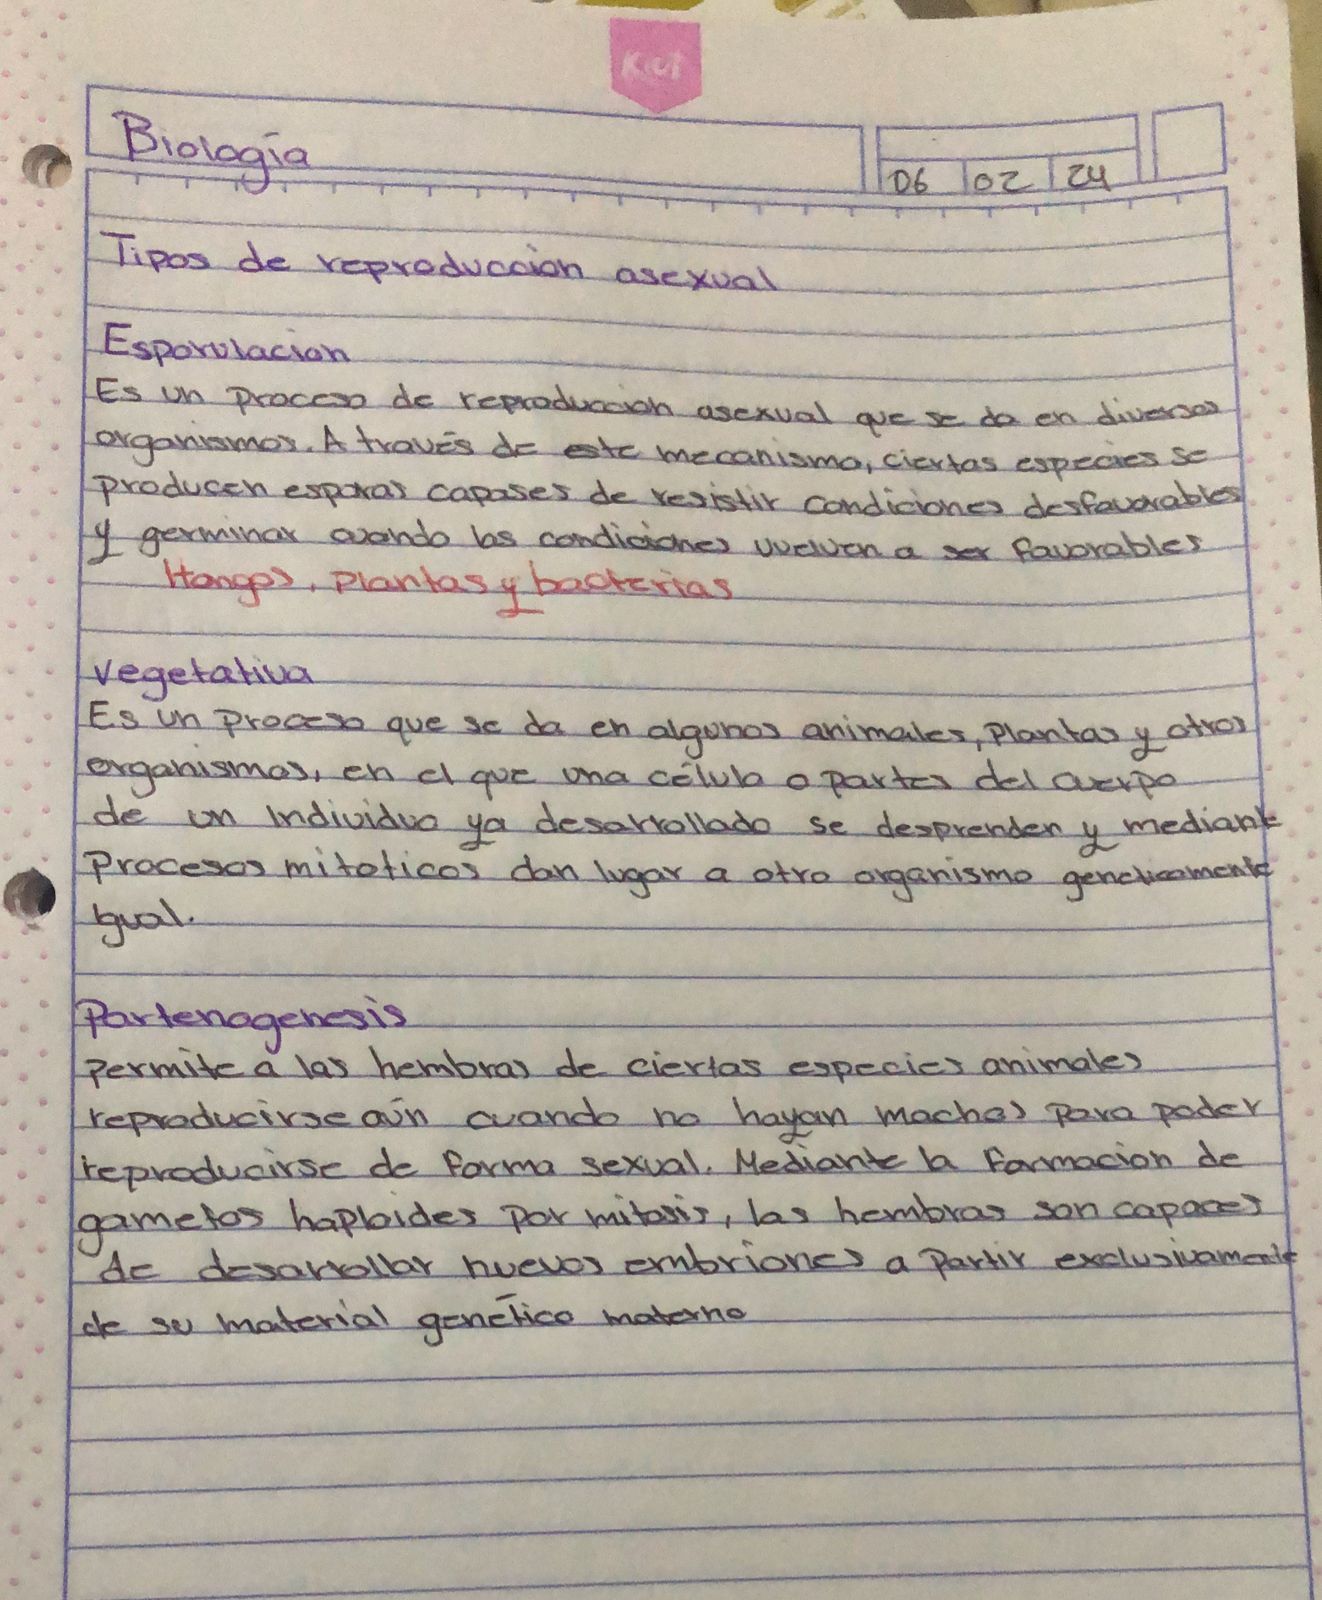 Kiut
Biología
06 02 24
Tipos de reproducción asexual
Esporulación
Es un proceso de reproducción asexual que se da en diversos
organismos. A través de este mecanismo, ciertas especies se
producen esporas capases de resistir condiciones desfavorables
y germinar cuando las condiciones vuelven a ser favorables
Hongos, plantas y bacterias
Vegetativa
Es un proceso que se da en algunos animales, plantas y otros
organismos, en el que una célula o partes del cuerpo
de un individuo ya desarrollado se desprenden y mediante
procesos mitoticos dan lugar a otro organismo geneticamente
igual.
Partenogenesis
permite a las hembras de ciertas especies animales
reproducirse aún cuando no hayan machos para poder
reproducirse de forma sexual. Mediante la formación de
gametos haploides por mitosis, las hembras son capaces
de desarrollar nuevos embriones a partir exclusivamente
de su material genético materno